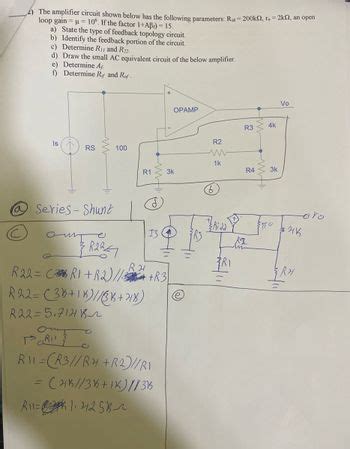 2) The amplifier circuit shown below has the following parameters: Rid = 200kΩ, ro = 2kΩ, an open
loop gain = μ = 10⁶. If the factor 1+Aβf) = 15.
a) State the type of feedback topology circuit.
b) Identify the feedback portion of the circuit.
c) Determine R11 and R22.
d) Draw the small AC equivalent circuit of the below amplifier.
e) Determine Af.
f) Determine Rif and Rof.
OPAMP
Vo
R3
4k
Is
RS
100
R2
1k
R1
3k
R4
3k
b
a Series - Shunt
d
c
R22
IS
RS
Rid
ro
Vo
4k
R2
R1
R4
R22 = (R1 + R2) // R4 + R3
R22 = (3k + 1k) // (3k + 4k)
R22 = 5.714k
e
R11
R11 = (R3 // R4 + R2) // R1
= (4k // 3k + 1k) // 3k
R11 = 1.425k